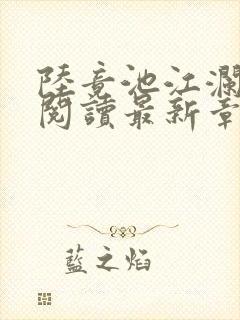 陸竟池江瀾
閱讀最新章
藍之焰